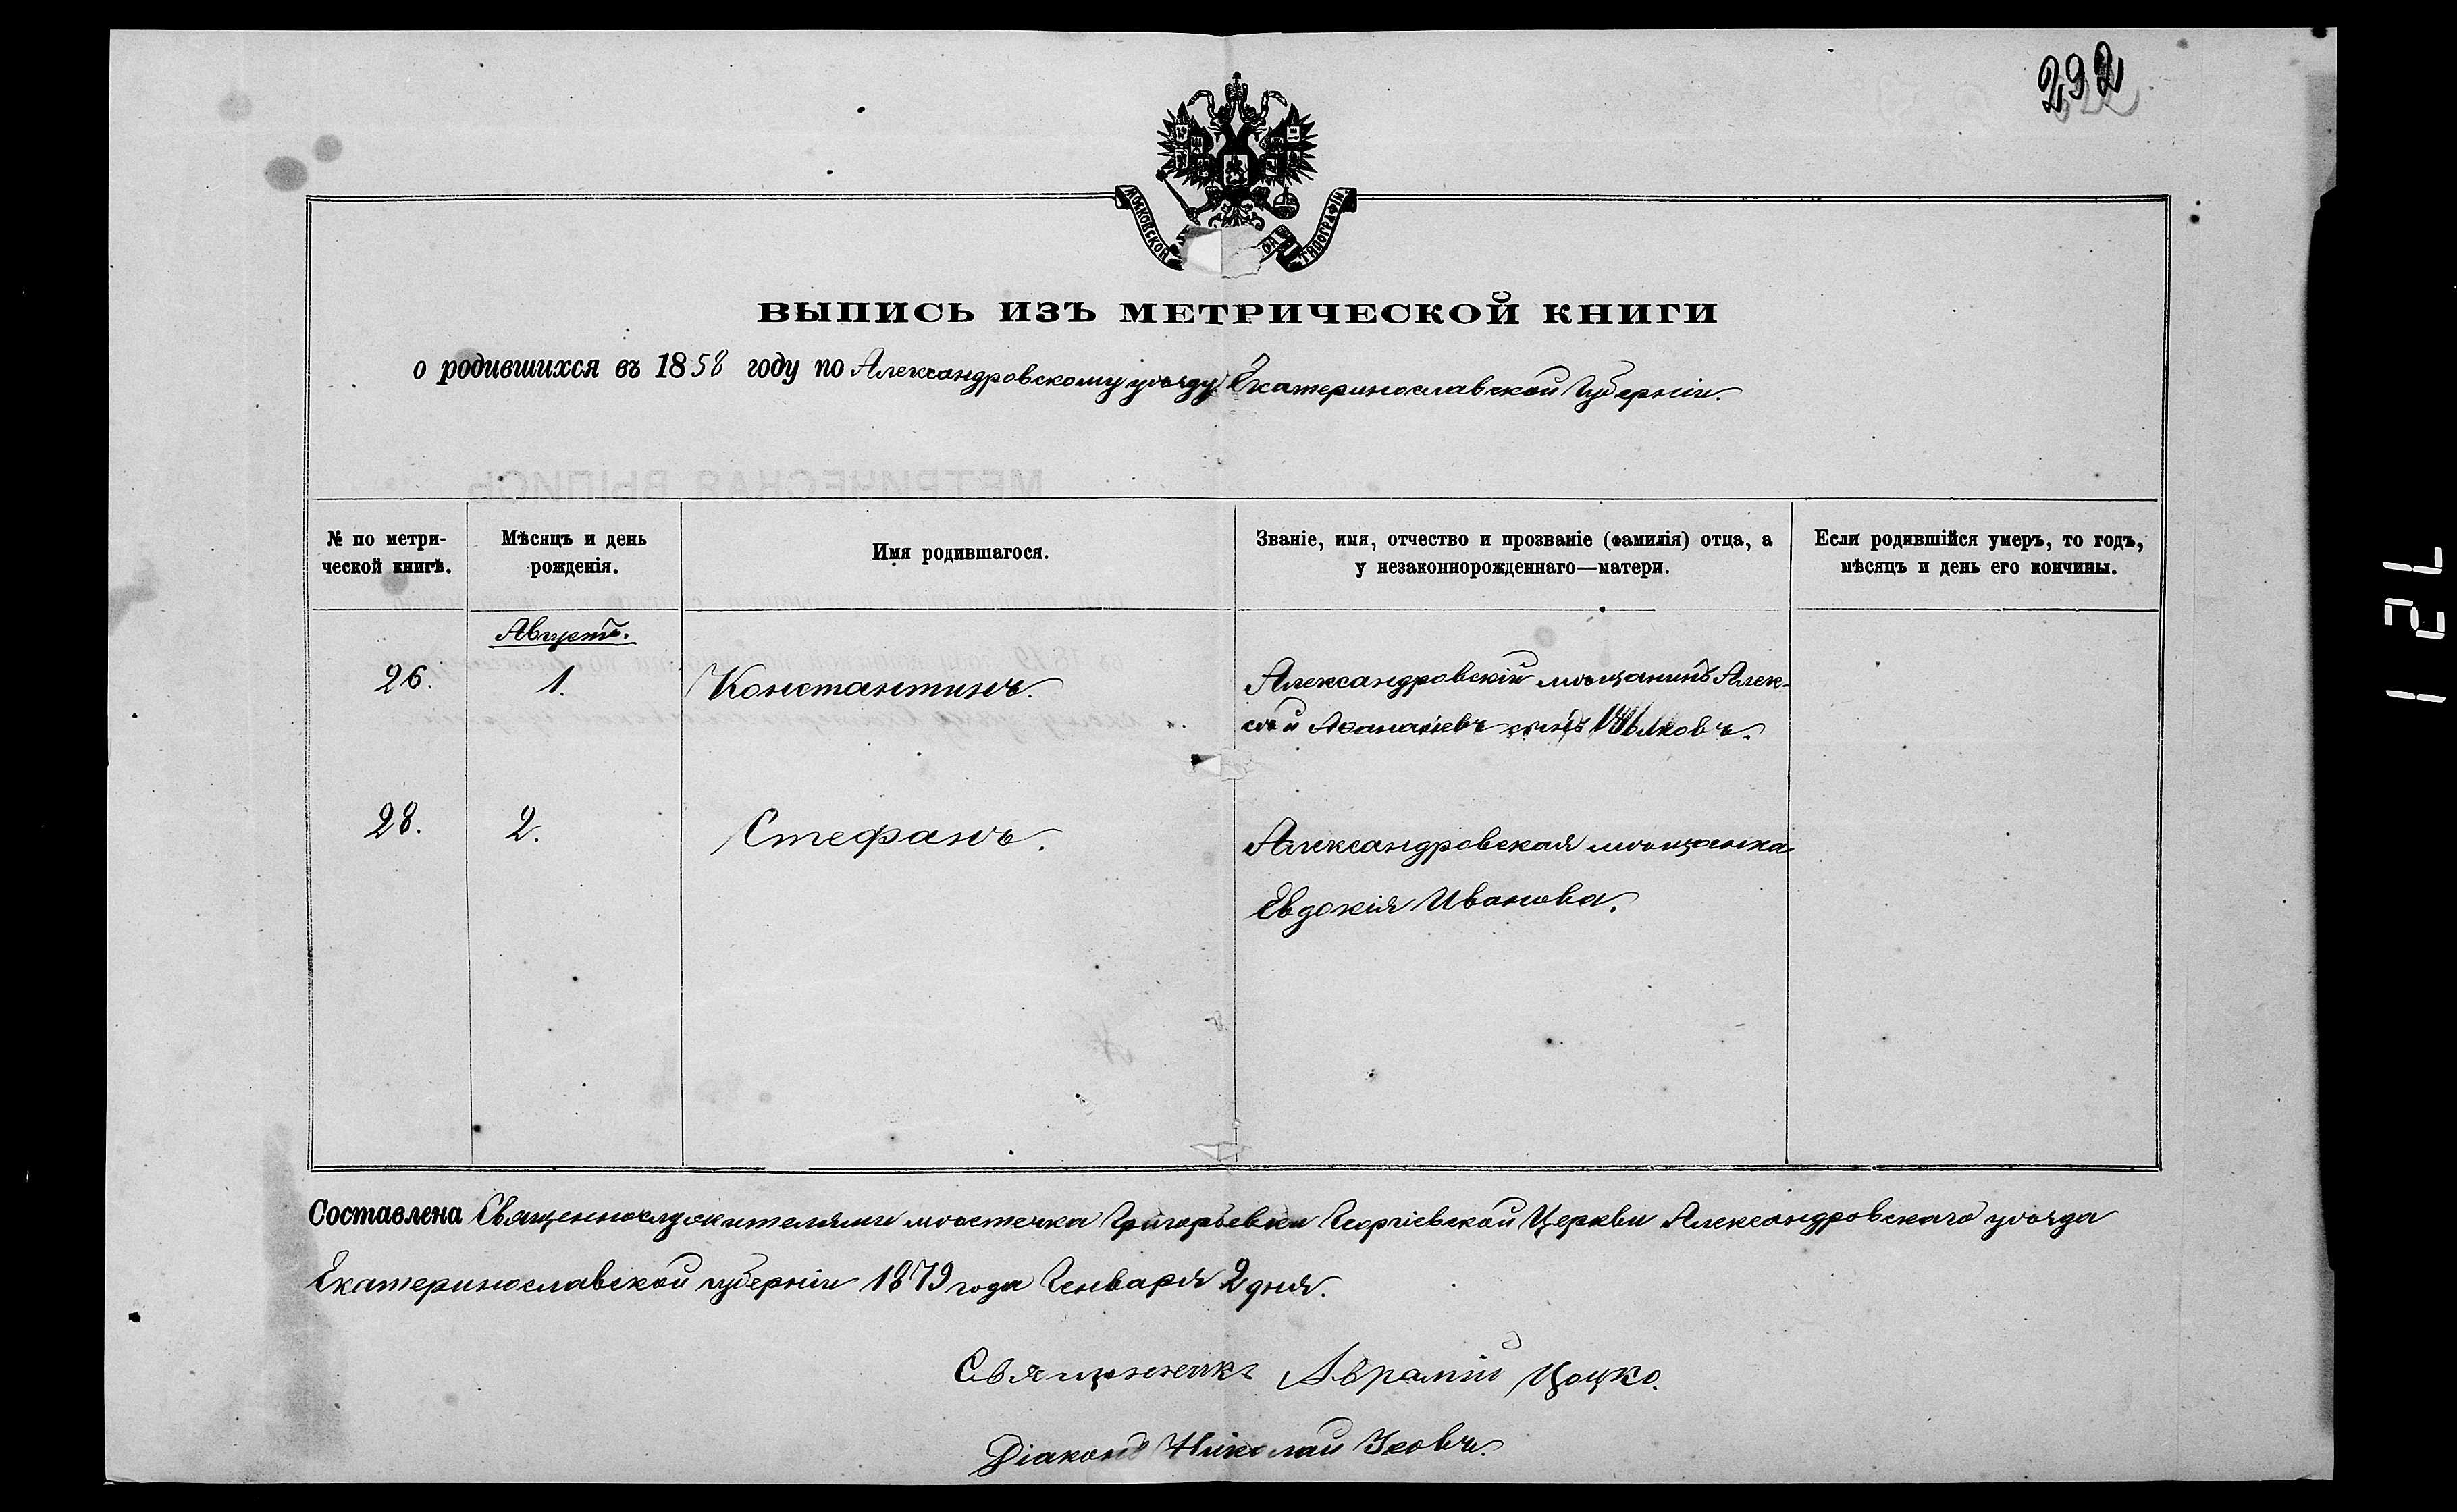 292
МОСКОВСКОЙ ТИПОГРАФІИ.
ВЫПИСЬ ИЗЪ МЕТРИЧЕСКОЙ КНИГИ
о родившихся въ 1858 году по Александровскому уѣзду Екатеринославской Губерніи.
МЕТРИЧЕСКАЯ ВЫПИСЬ
№ по метри-
ческой книгѣ.
Мѣсяцъ и день
рожденія.
Имя родившагося.
Званіе, имя, отчество и прозваніе (фамилія) отца, а
у незаконнорожденнаго—матери.
Если родившійся умеръ, то годъ,
мѣсяцъ и день его кончины.
Августъ.
26. 1. Константинъ. Александровскій мѣщанинъ Алек-
сѣй Аѳанасіевъ сынъ
28. 2. Стефанъ. Александровская мѣщанка
Евдокія Иванова.
Составлена Священнослужителями мѣстечка Григорьевки Георгіевской Церкви Александровскаго уѣзда
Екатеринославской губерніи 1879 года Генваря 2 дня.
Священникъ Аврамій Цоцко.
Діаконъ Николай
121